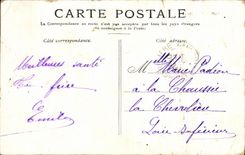 CARTE POSTALE
La Correspondance au recto n'est pas acceptée par tous les pays étrangers
(Se renseigner à la Poste)
Côté correspondance.
Côté adresse.
Meilleure santé
Ton frère
Emile
Mlle Marie Padiou
à la Chaussée
la Chevrolière
Loire-Inférieure